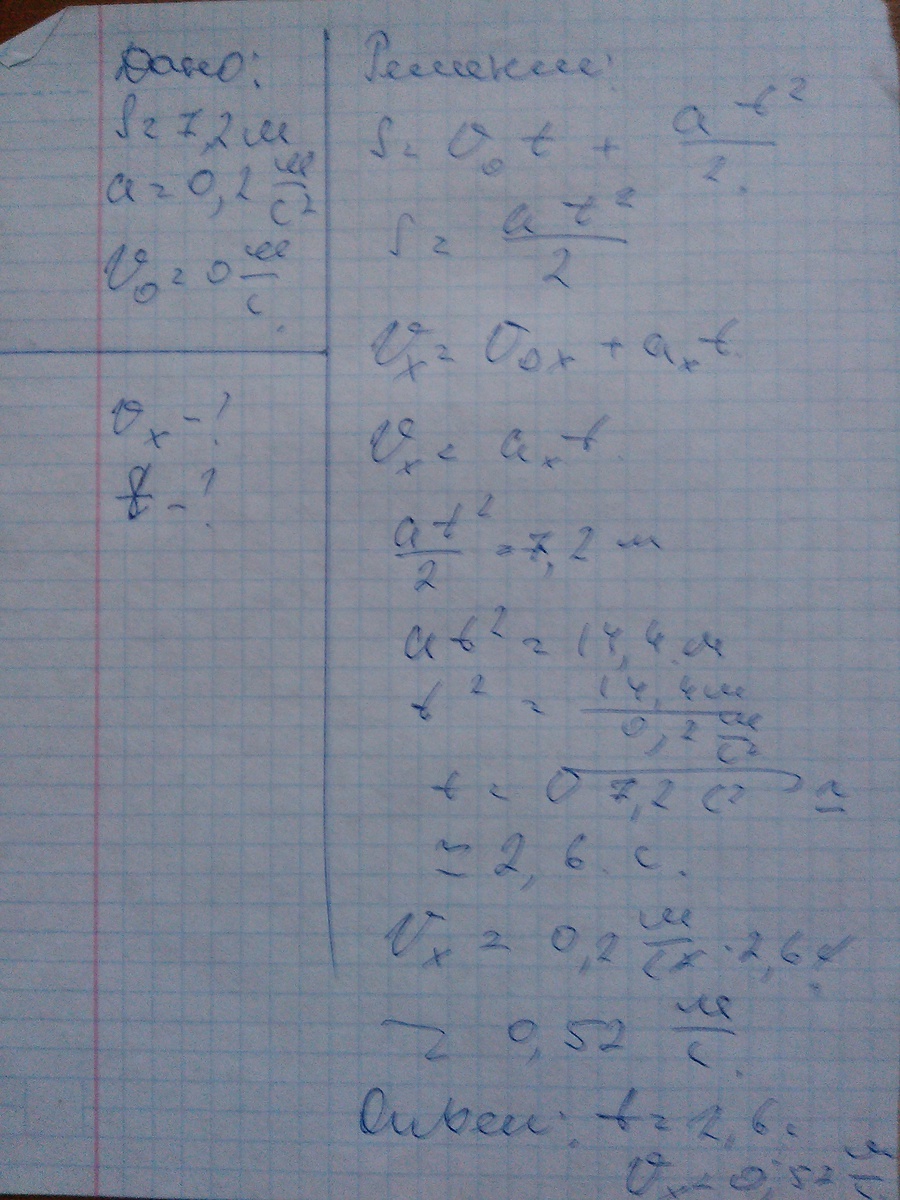 Дано:
S = 7,2 м
a = 0,2 м/с²
V₀ = 0 м/с.
υₓ - ?
t - ?
Решение:
S = V₀ t + a t²/2.
S = a t²/2
Vₓ = V₀ₓ + aₓt.
Vₓ = aₓt.
at²/2 = 7,2 м
at² = 14,4 м
t² = 14,4 м / 0,2 м/с²
t = √7,2 с² ≃
≃ 2,6 с.
Vₓ = 0,2 м/с² · 2,6 с
= 0,52 м/с.
Ответ: t = 2,6 с
Vₓ = 0,52 м/с